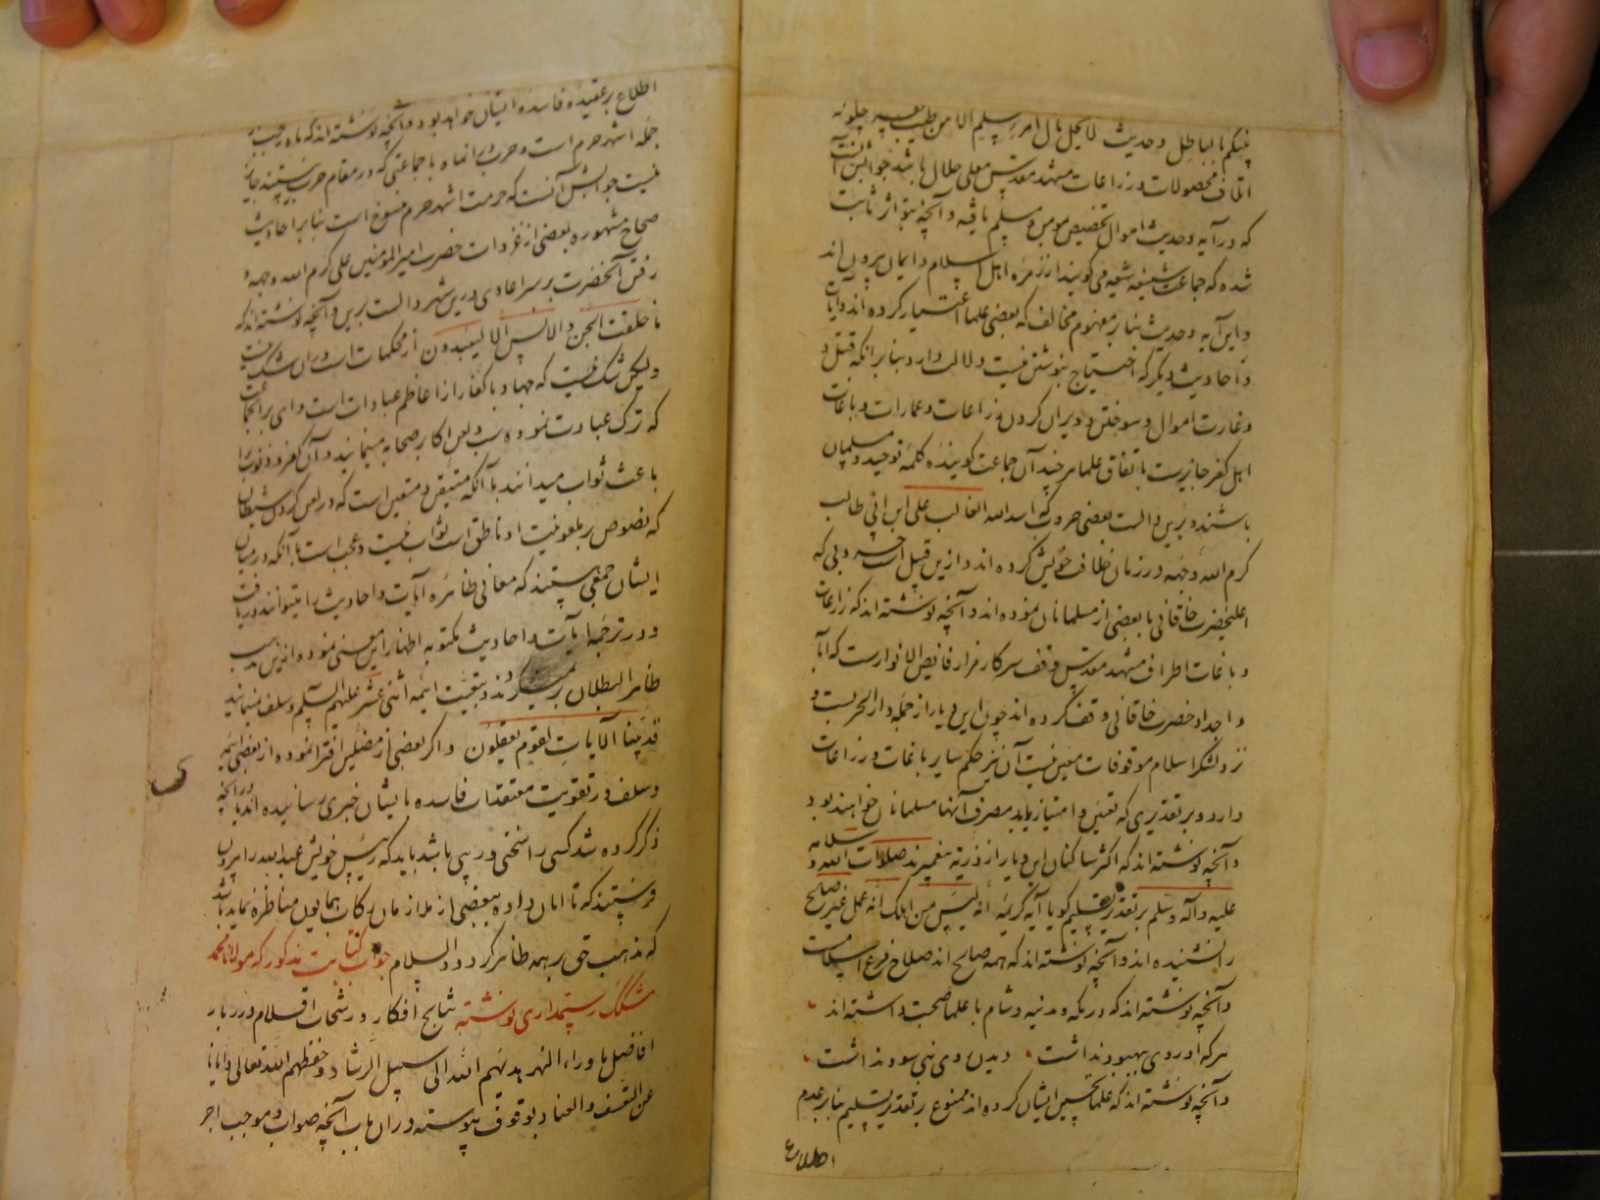 بینکم بالباطل و حدیث لا یحل مال امرء مسلم الا من طیب نفسه چگونه
اتلاف محصولات و زراعات مشهد مقدس معلی حلال باشد جوابش آنست
که در آیه و حدیث اموال تخصیص مومن و مسلم یافته و آنچه بتواتر ثابت
شده که جماعت شنیعه شیعه می کویند از زمره اهل اسلام و ایمان بیرون اند
و این آیه و حدیث بنا بر مفهوم مخالف که بعضی علما اعتبار کرده اند و آیات
و احادیث دیگر که احتیاج بنوشتن نیست دلالت دارد بنا بر آنکه قتل و
و غارت اموال و سوختن و ویران کردن زراعات و عمارات و باغات
اهل کفر جایزست باتفاق علما هر چند آن جماعت کوینده کلمه توحید و مسلمان
باشند و برین دالست بعضی حروب که اسد الله الغالب علی ابن ابی طالب
کرم الله وجهه در زمان خلافت خویش کرده اند و ازین قبل است حربی که
اعلیحضرت خاقانی با بعضی از مسلمانان نموده اند و آنچه نوشته اند که زراعات
و باغات اطراف مشهد مقدس وقف سرکار مزار فایض الانوارست که آبا
و اجداد حضرت خاقانی وقف کرده اند چون این دیار از جمله دار الحربست و
نزد لشکر اسلام موقوفات معین نیست آن نیز حکم سایر باغات و زراعات
دارد و بر تقدیری که تعین و امتیاز یابد مصرف آنها مسلمانان خواهند بود
و آنچه نوشته اند که اکثر ساکنان این دیار از ذریه پیغمبرند صلوات الله و سلامه
علیه و آله و سلم بر تقدیر تسلیم کویا آیه کریمه انه لیس من اهلک انه عمل غیر صالح
را نشنیده اند و آنچه نوشته اند که همه صالح اند صلاح فرع اسلامست
و آنچه نوشته اند که در مکه و مدینه و شام با علما صحبت داشته اند
هر که او روی بهبود نداشت دیدن روی نبی سود نداشت
و آنچه نوشته اند که علما تحسین ایشان کرده اند ممنوع بر تقدیر تسلیم بنا بر عدم
اطلاع
اطلاع بر عقیده فاسده ایشان خواهد بود و آنچه نوشته اند که ماه رجب از
جمله اشهر حرم است و حرب در این ماه با جماعتی که در مقام حرب نیستند جایز
نیست جوابش آنست که حرمت اشهر حرم منسوخ است بنا بر احادیث
صحاح مشهوره بعضی از غزوات حضرت امیر المومنین علی کرم الله وجهه و
رفتن آنحضرت بر سر اعادی درین شهر دالست برین و آنچه نوشته اند که
ما خلقت الجن و الانس الا لیعبدون از محکمات است در آن شک نیست
و لیکن شک نیست که جهاد با کفار از اعاظم عبادات است وای بر آنجماعت
که ترک عبادت نموده سب و لعن اکابر صحابه مینمایند و آن کفر و ذنوب را
باعث ثواب میدانند با آنکه متیقن و متعین است که در لعن کردن شیطان
که نصوص بر ملعونیت او ناطق است ثواب نیست و عجب است با آنکه در میان
ایشان جمعی هستند که معانی ظاهره آیات و احادیث را میتوانند دریافت
و در ترجمه آیات و احادیث مکتوبه اظهار این معنی نموده اند این مذهب
ظاهر البطلان بر میگزینند و بتبعیت ایمه اثنی عشر علیهم السلم و سلف مینمایند
قد بینا الآیات لقوم یعقلون و اگر بعضی از مضلین افترا نموده از بعضی ایمه
و سلف در تقویت معتقدات فاسده بایشان خبری رسانیده اند یا در آنچه
ذکر کرده شد کسی را سخنی در پی باشد باید که رییس خویش عبد الله را بیرون
فرستند که تا امان داده ببعضی از ملازمان رکاب همایون مناظره نماید باشد
که مذهب حق بر همه ظاهر کردد و السلام جواب کتابت مذکور که مولانا محمد
مشکک رستمداری نوشته نتایج افکار و رشحات اقلام درربار
افاضل ماوراء النهر هدیهم الله الی سبیل الرشاد و حفظهم الله تعالی و ایانا
عن التعسف و العناد بوقوف پیوسته در آن باب آنچه صواب و موجب اجر